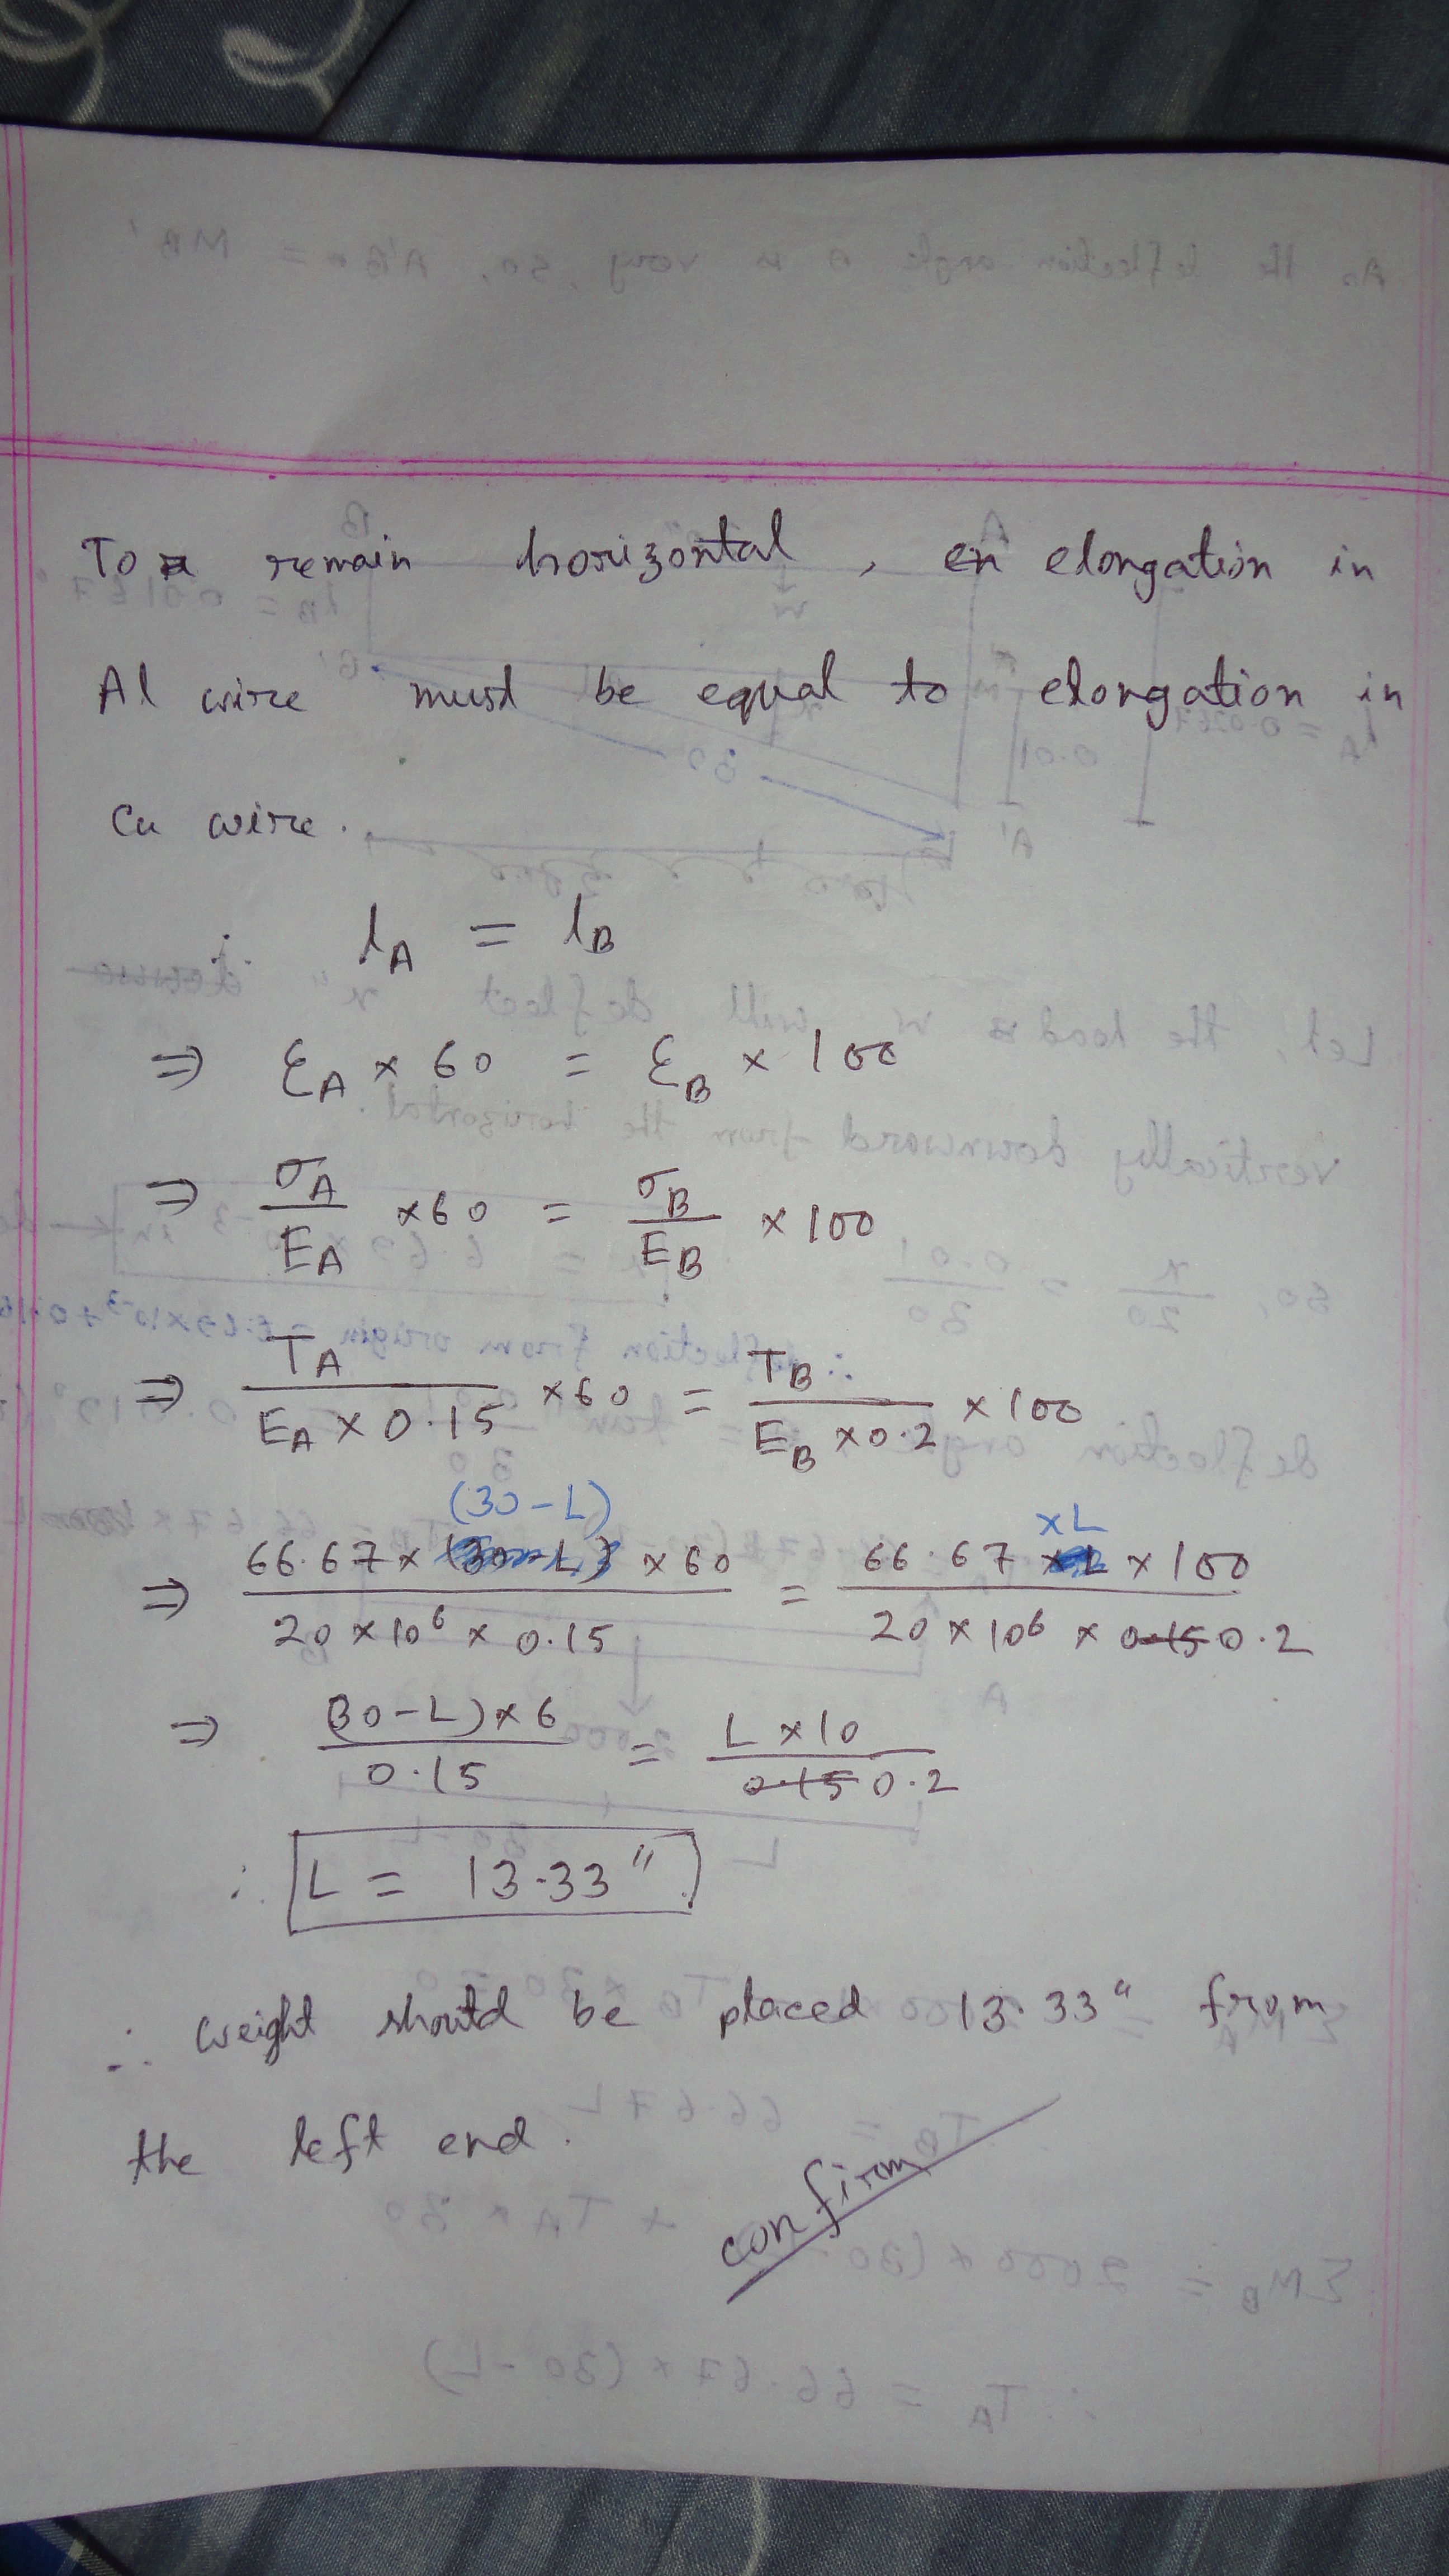 To remain horizontal, en elongation in
Al wire must be equal to elongation in
Cu wire.
∴ lA = lB
⇒ εA × 60 = εB × 100
⇒ σA/EA × 60 = σB/EB × 100
⇒ TA/(EA × 0.15) × 60 = TB/(EB × 0.2) × 100
⇒ (66.67 × (30-L) × 60)/(20 × 10⁶ × 0.15) = (66.67 × L × 100)/(20 × 10⁶ × 0.15 0.2)
⇒ ((30-L) × 6)/0.15 = (L × 10)/(0.15 0.2)
∴ L = 13.33"
∴ weight should be placed 13.33" from
the left end.
confirm